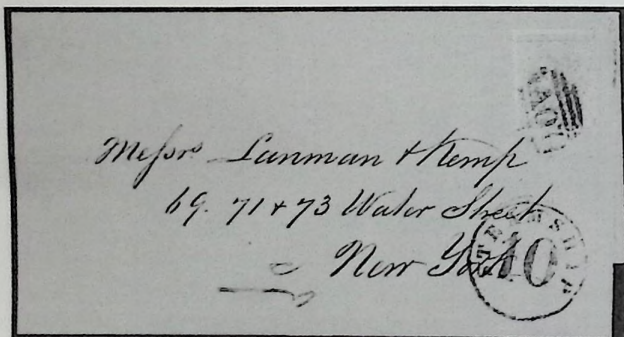 A01
Messrs Lanman & Kemp
69. 71 & 73 Water Street
New York
STEAMSHIP
10